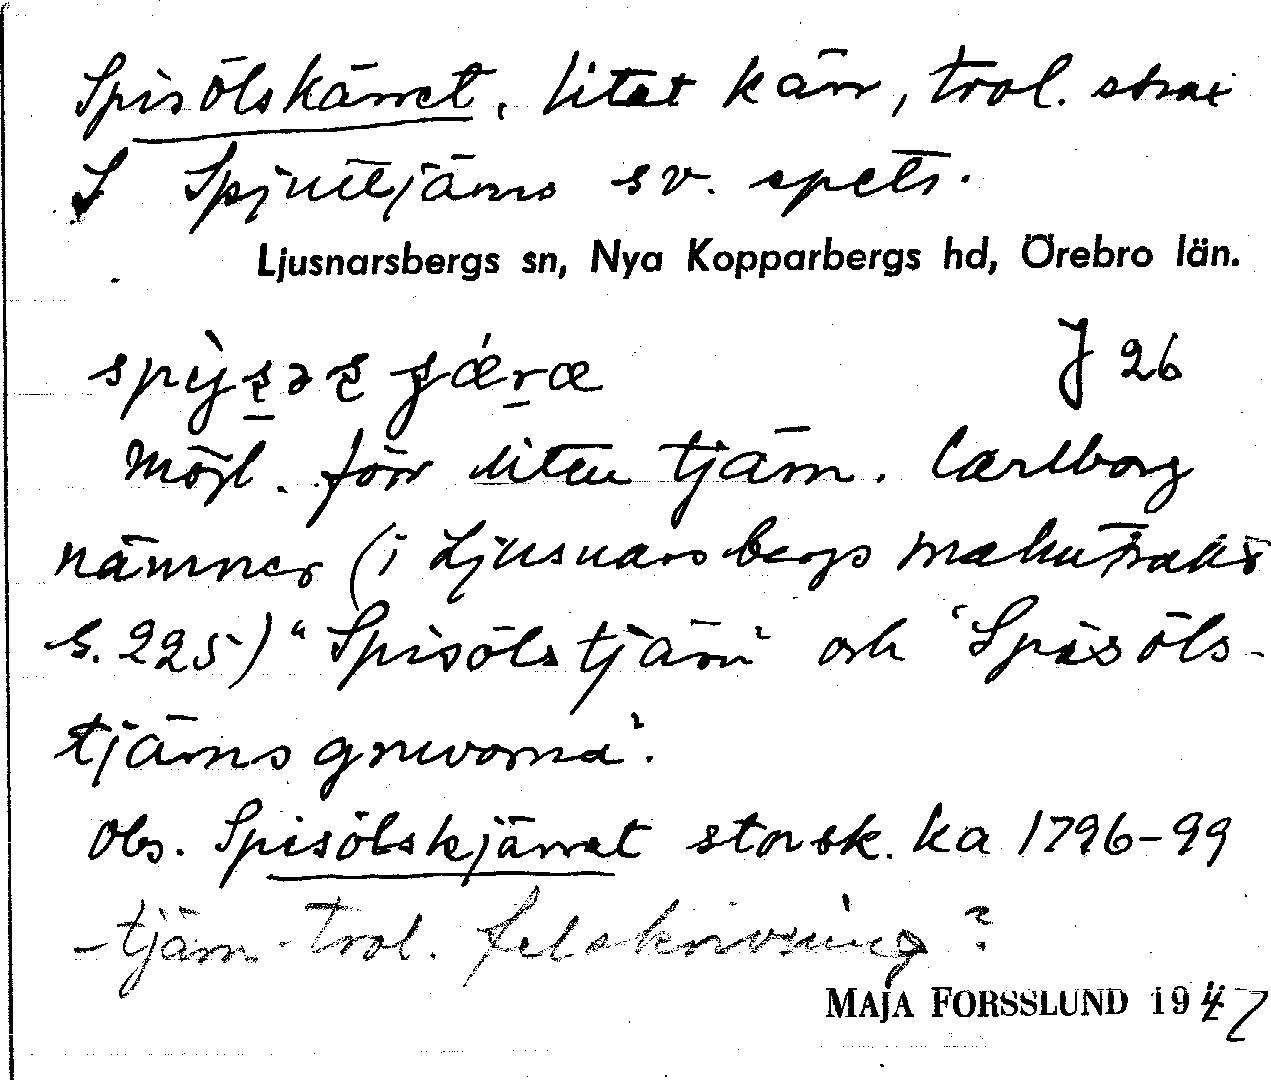 Spisölskärret, litet kärr, trol. strax
S Spjuttjärns sv. spets.
Ljusnarsbergs sn, Nya Kopparbergs hd, Örebro län.
J 26
Möjl. förr liten tjärn. Carlborg
nämner (i Ljusnarsbergs malmtrakt
s. 225) "Spisölstjärn" och "Spisöls-
tjärnsgruvorna".
Obs. Spisölskjärret storsk. ka 1796-99
-tjärn trol. felskrivning?
MAJA FORSSLUND 1947